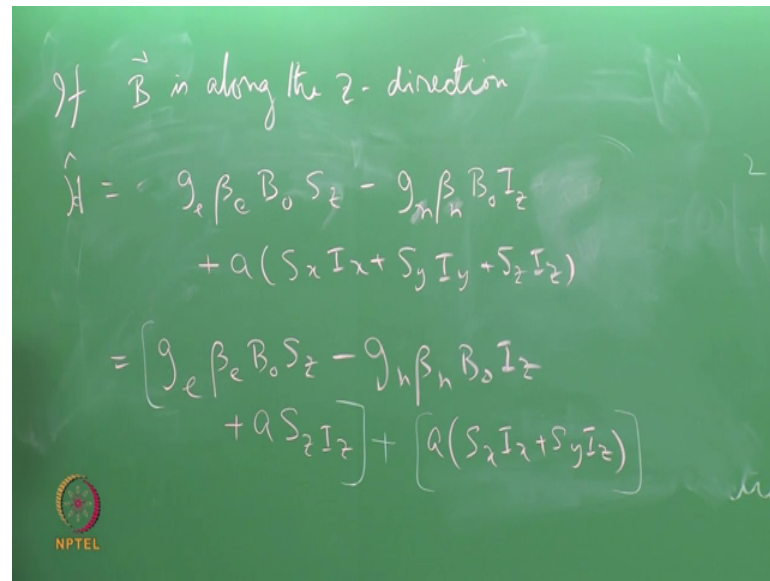 If B⃗ is along the z-direction
Ĥ = g_e β_e B_0 S_z - g_n β_n B_0 I_z
+ a(S_x I_x + S_y I_y + S_z I_z)
= [g_e β_e B_0 S_z - g_n β_n B_0 I_z
+ a S_z I_z] + [a(S_x I_x + S_y I_z)]
2
NPTEL